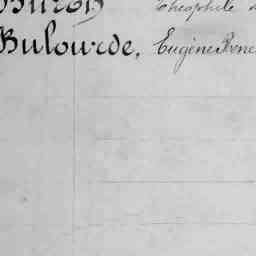 Buron Théophile
Bulourde, Eugène René